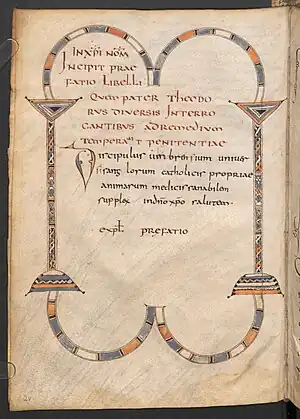 IN XPI NOM
INCIPIT PRAE
FATIO LIBELLI
QUEM PATER THEODO
RUS DIVERSIS INTERRO
GANTIBUS AD REMEDIUM
TEMPERAUIT PENITENTIAE
Discipulus umbrensium univer
sis anglorum catholicis propriae
animarum medicis sanabilem
supplex in dno xpo salutem
expl prefatio